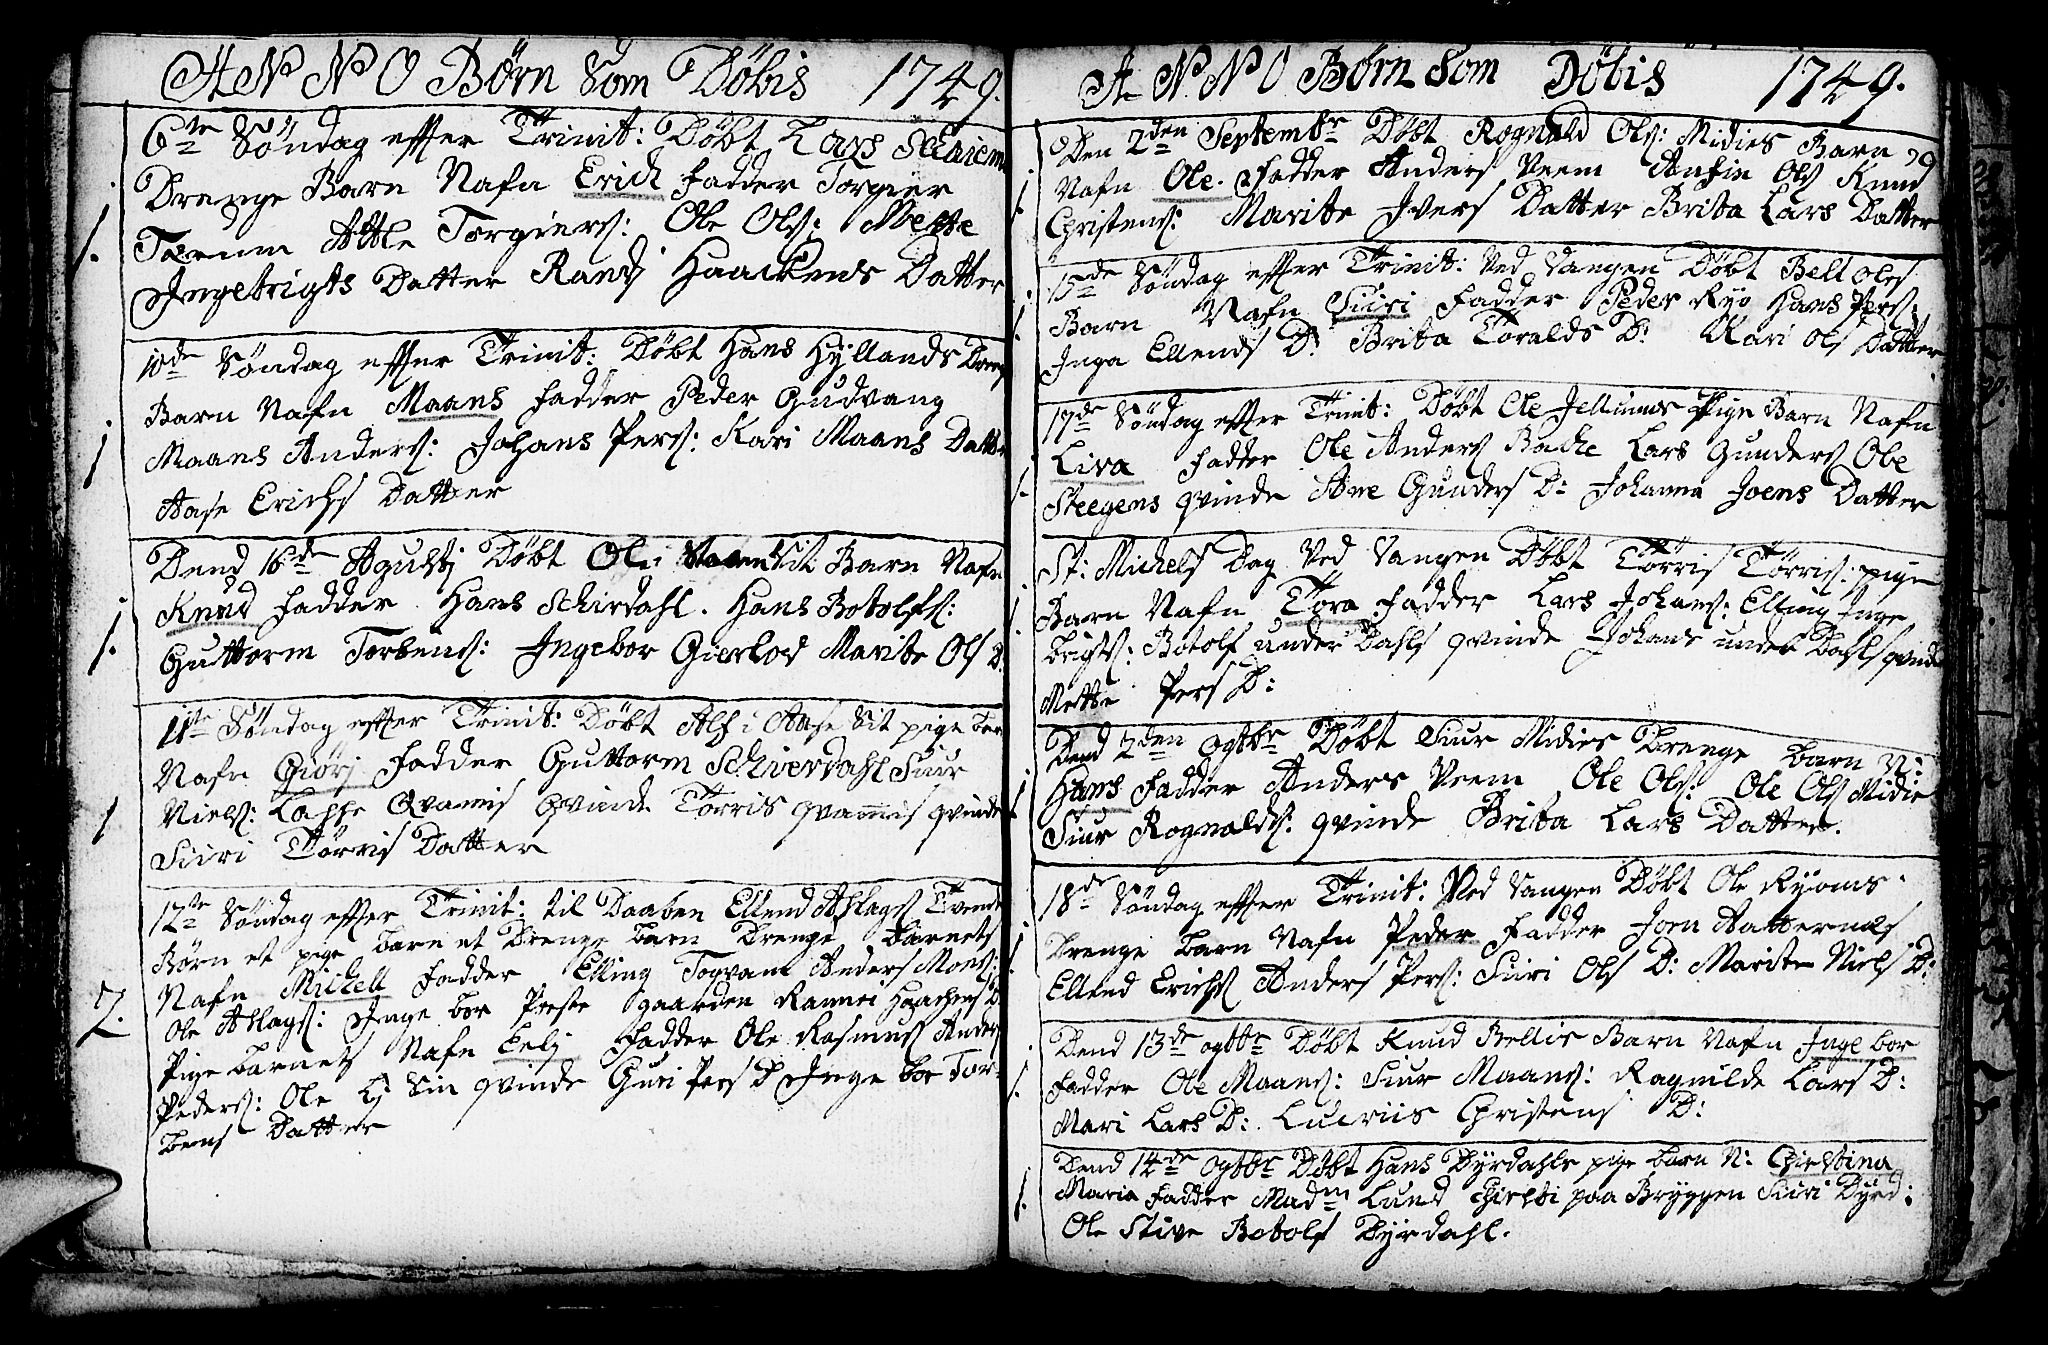 ANNO Børn Som Döbis 1749.
6te Söndag effter Trinit: Döbt Lars
Drenge Barn Nafn Erich Fadder Torgier
Atle Torgiers: Ole Ols: Mette
Ingebrigts Datter Randi Haackens Datter
1.
10de Söndag effter Trinit: Döbt Hans Hÿllands Dreng
Barn Nafn Maans Fadder Peder Gudvang
Maans Anders: Johans Pers: Kari Maans Datter
Aase Erichs Datter
1
Dend 16de Agusti Döbt Ole Sit Barn Nafn
Knud Fadder Hans Schirdahl. Hans Botolfs:
Guttorm Torbens: Ingebor Gierlov Marite Ols D.
1.
11te Söndag effter Trinit: Döbt Alf i Aase Sit pige bar
Nafn Giöri Fadder Guttorm Schiverdahl Siur
Niels: Lasse Qvamis Qvinde Törris qvamis qvinde
Siiri Törris Datter
1
12te Söndag effter Trinit: til Daaben Ellend Aslags Tvende
Børn et pige barn et Drenge barn Drenge barnets
Nafn Michell Fadder Elling Togvam Anders Mons:
Ole Aslags: Inge bor Preste gaarden Rannei Haachens D
Pige barnets Nafn Eeli Fadder Ole Rasmus Anders
Peders: Ole Li Sin qvinde Guri Pers D Inge bor Tor-
bens Datter
2.
ANNO Børn Som Döbis 1749.
Den 2den Septembr Döbt Rognald Ols: Midies Barn
Nafn Ole. Fadder Anders Veem Anfin Ols Knud
Christens: Marite Ivers Datter Brita Lars Datter
1.
15de Söndag effter Trinit: Ved Vangen Döbt Bell Oles
Barn Nafn Siiri Fadder Peder Ryo Hans Pers:
Inga Ellends D: Brita Toralds D: Kari Ols Datter
1.
17de Söndag effter Trinit: Döbt Ole Jellums Pige Barn Nafn
Liva Fadder Ole Anders Bache Lars Gunders Obe
Steegens qvinde Ane Gunders D: Johanna Joens Datter
1.
St: Michels Dag Ved Vangen Döbt Törris Törris: pige
Barn Nafn Tora Fadder Lars Johans: Elling Inge
brigts: Botolf under Dahls qvinde Johans under Dahls qvinde
Mette Pers D:
1
Dend 2den Ogtbr Döbt Siur Midies Drenge barn N:
Hans Fadder Anders Veem Ole Ols: Ole Ols Midie
Siur Rognalds: qvinde Brita Lars Datter.
1
18de Söndag effter Trinit: Ved Vangen Döbt Ole Ryoms
Drenge barn Nafn Peder Fadder Joen
Ellend Erichs Anders Pers: Siiri Ols D: Marite Niels D:
1
Dend 13de ogtbr Döbt Knud Bellis Barn Nafn Inge bor
Fadder Ole Maans: Siur Maans: Ragnilde Lars D:
Mari Lars D: Lucriis Christens D:
1.
Dend 14de Ogtbr Döbt Hans Dyrdahls pige barn N: Chirstina
Maria Fadder Madm Lund Chirsti paa Bryggen Siiri Dyrd:
Ole Stive Botolf Dyrdahl.
1.